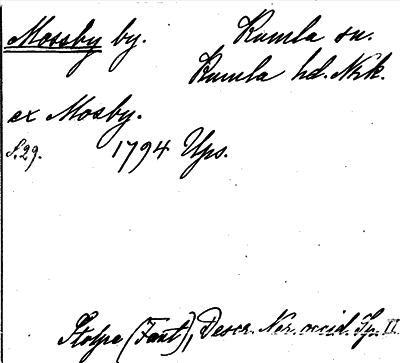 Mossby by. Kumla sn.
Kumla hd. Nrk.
ex Mosby.
S. 29. 1794 Ups.
Stolpe (Fant), Descr. Ner. occid. Sp. II